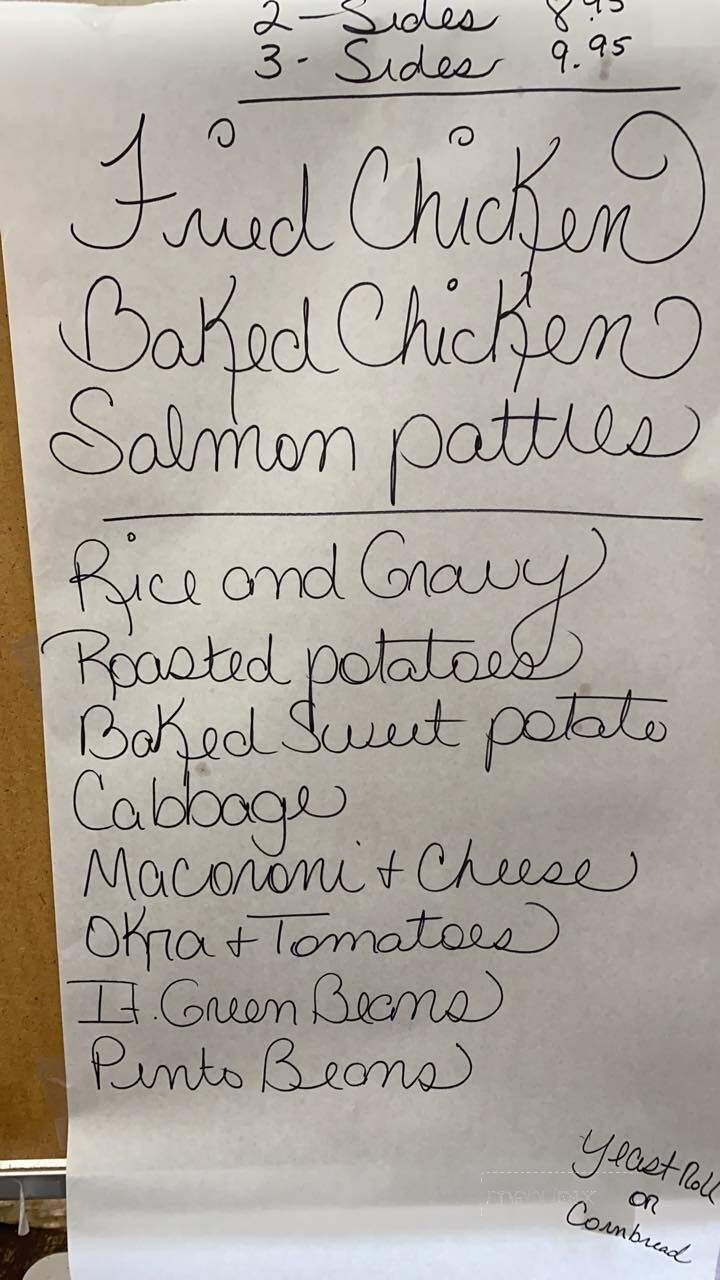 2-Sides 8.95
3- Sides 9.95
Fried Chicken
Baked Chicken
Salmon patties
Rice and Gravy
Roasted potatoes
Baked Sweet potato
Cabbage
Macoroni + Cheese
Okra + Tomatoes
It. Green Beans
Pinto Beans
Yeast Roll
or
Cornbread